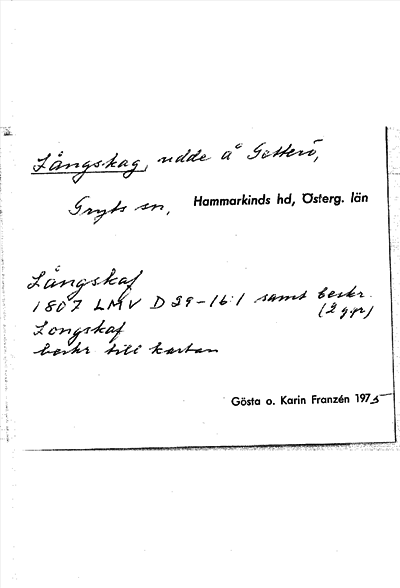 Långskag, udde å Gotterö,
Gryts sn, Hammarkinds hd, Österg. län
Långskaf
1807 LMV D 29-16:1 samt beskr.
(2 ggr)
Longskaf
beskr till kartan
Gösta o. Karin Franzén 1975